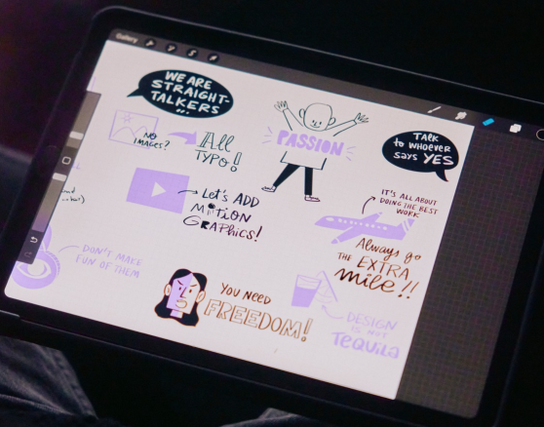 Gallery
WE ARE
STRAIGHT-
TALKERS
...
NO
IMAGES?
All
TYPO!
PASSION
TALK
to WHOEVER
SAYS YES
Let's ADD
MOTION
GRAPHICS!
IT'S ALL ABOUT
DOING THE BEST
WORK
Always go
THE EXTRA
mile!!
DON'T MAKE
FUN OF THEM
YOU NEED
FREEDOM!
DESIGN
IS NOT
TEQUILA